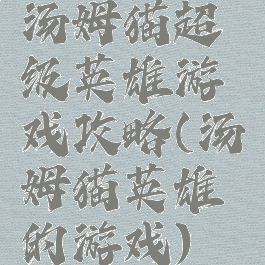 汤姆猫超
级英雄游
戏攻略(汤
姆猫英雄
的游戏)